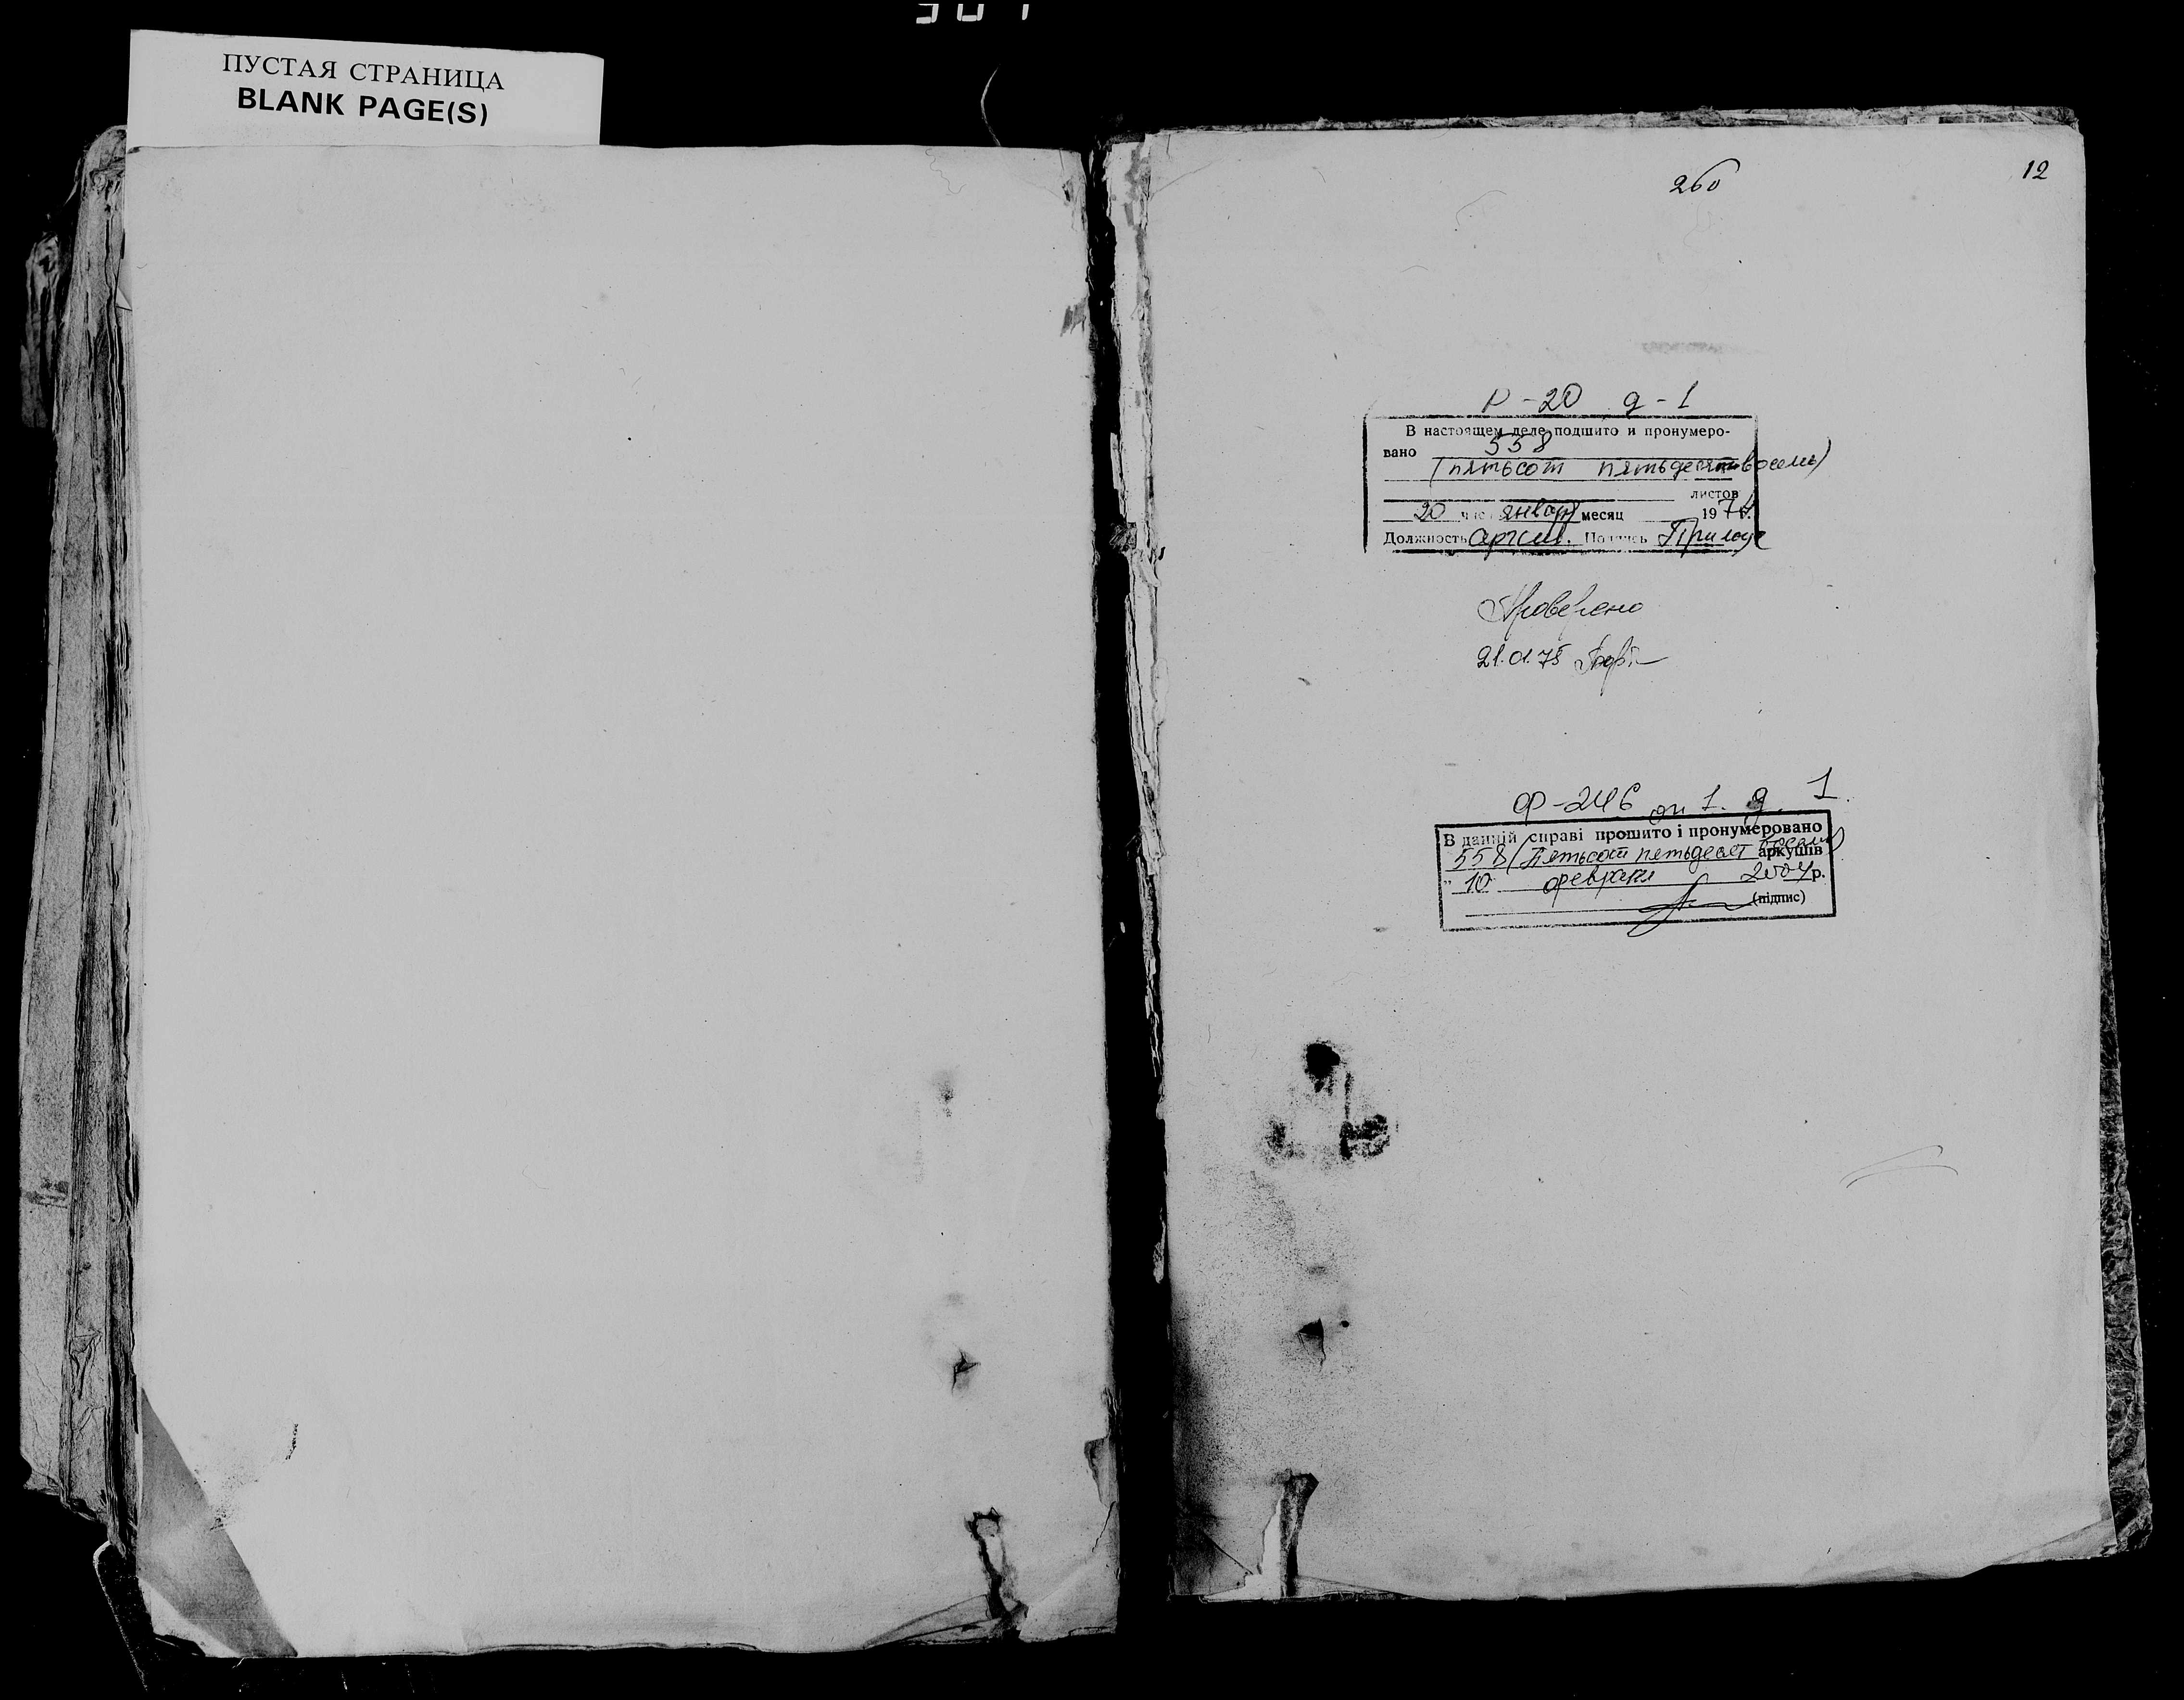 ПУСТАЯ СТРАНИЦА
BLANK PAGE(S)
260
12
Р-20 д-1
В настоящем деле подшито и пронумеро-
вано 558
(пятьсот пятьдесят восемь)
листов
20 января месяц 1974 г.
Должность архив. Подпись
Проверено
21.01.75
Ф-246 оп 1. д. 1.
В данній справі прошито і пронумеровано
558 (пятьсот пятьдесят восемь) аркушів
" 10 февраля 2004 р.
(підпис)